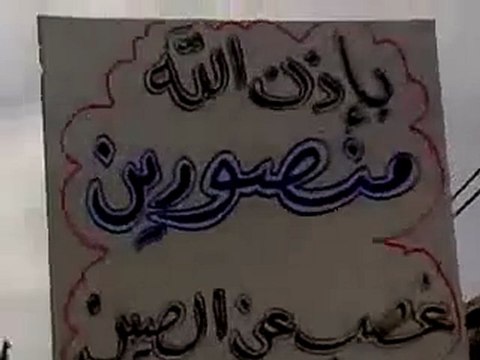 بإذن الله
منصورين
غصب عن الصين